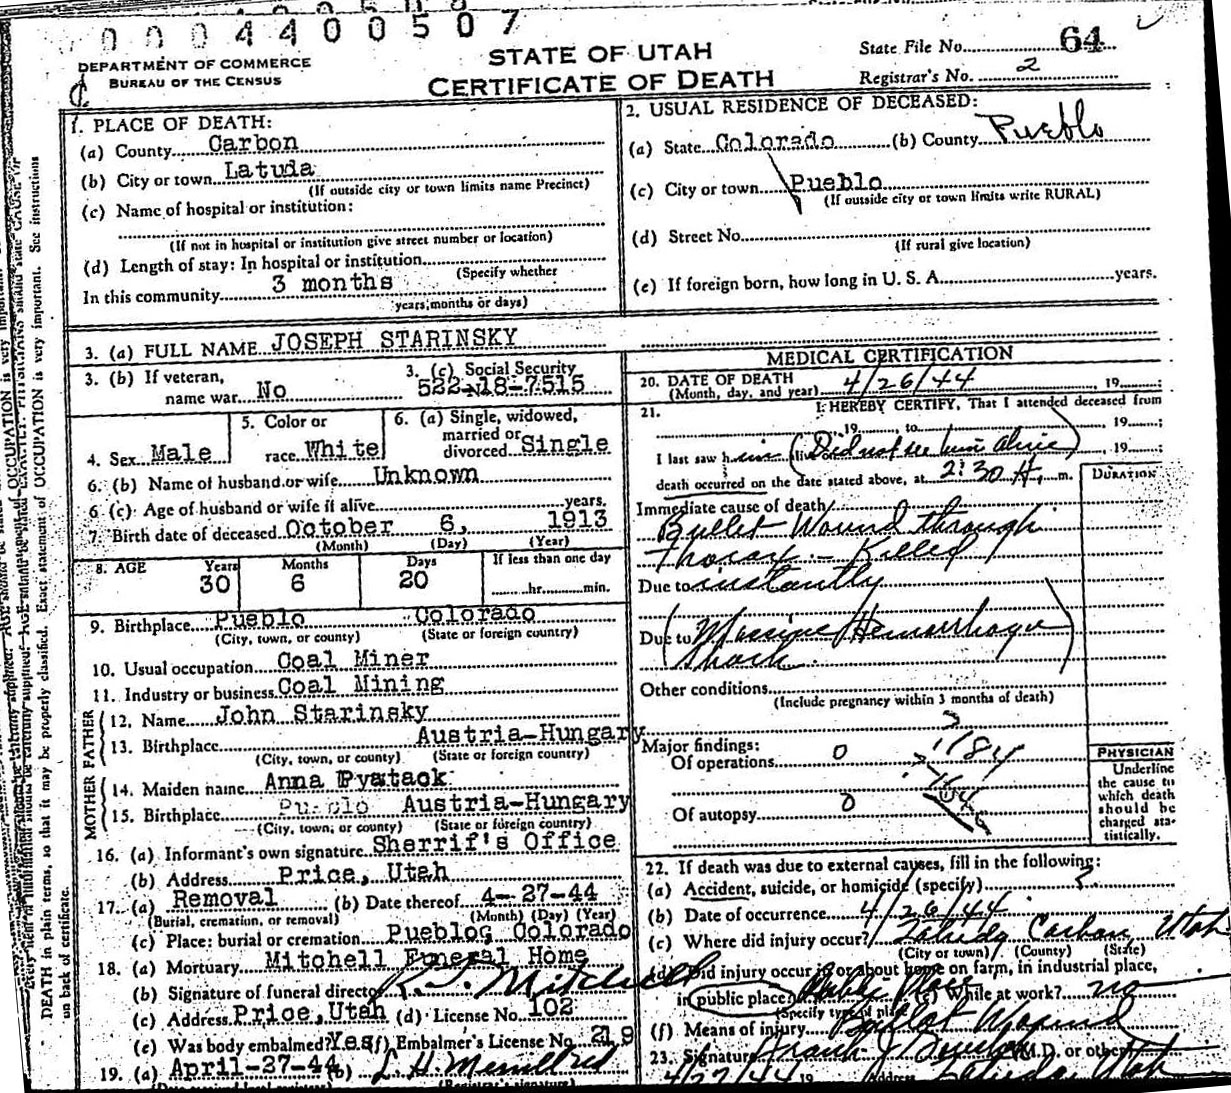 0004400507
DEPARTMENT OF COMMERCE
BUREAU OF THE CENSUS
STATE OF UTAH
CERTIFICATE OF DEATH
State File No. 64
Registrar's No. 2
1. PLACE OF DEATH:
(a) County Carbon
(b) City or town Latuda
(If outside city or town limits name Precinct)
(c) Name of hospital or institution:
(If not in hospital or institution give street number or location)
(d) Length of stay: In hospital or institution
(Specify whether
In this community 3 months
years, months or days)
2. USUAL RESIDENCE OF DECEASED:
(a) State Colorado (b) County Pueblo
(c) City or town Pueblo
(If outside city or town limits write RURAL)
(d) Street No.
(If rural give location)
(e) If foreign born, how long in U. S. A. years.
3. (a) FULL NAME JOSEPH STARINSKY
3. (b) If veteran,
name war No
3. (c) Social Security
522-18-7515
4. Sex Male
5. Color or
race White
6. (a) Single, widowed,
married or
divorced Single
6. (b) Name of husband or wife Unknown
6 (c) Age of husband or wife if alive years.
7. Birth date of deceased October 6, 1913
(Month) (Day) (Year)
8. AGE Years Months Days If less than one day
30 6 20 hr. min.
9. Birthplace Pueblo Colorado
(City, town, or county) (State or foreign country)
10. Usual occupation Coal Miner
11. Industry or business Coal Mining
FATHER
12. Name John Starinsky
13. Birthplace Austria-Hungary
(City, town, or county) (State or foreign country)
MOTHER
14. Maiden name Anna Pyatack
15. Birthplace Pueblo Austria-Hungary
(City, town, or county) (State or foreign country)
16. (a) Informant's own signature Sherrif's Office
(b) Address Price, Utah
17. (a) Removal (b) Date thereof 4-27-44
(Burial, cremation, or removal) (Month) (Day) (Year)
(c) Place: burial or cremation Pueblo, Colorado
18. (a) Mortuary Mitchell Funeral Home
(b) Signature of funeral director Mitchell
(c) Address Price, Utah (d) License No. 102
(e) Was body embalmed? Yes (f) Embalmer's License No. 219
19. (a) April-27-44 (b)
(Registrar's signature)
MEDICAL CERTIFICATION
20. DATE OF DEATH
(Month, day, and year) 4/26/44 , 19 ;
21. I HEREBY CERTIFY, That I attended deceased from
, 19 , to , 19 ;
I last saw him alive (Did not see him alive) , 19 ;
death occurred on the date stated above, at 2:30 A. m.
DURATION
Immediate cause of death
Bullet Wound through
Thorax - Killed
Due to instantly
Due to (Massive Hemorrhage
Shock.)
Other conditions
(Include pregnancy within 3 months of death)
Major findings:
Of operations 0
Of autopsy 0
PHYSICIAN
Underline
the cause to
which death
should be
charged sta-
tistically.
22. If death was due to external causes, fill in the following:
(a) Accident, suicide, or homicide (specify) ?
(b) Date of occurrence 4/26/44
(c) Where did injury occur? Latuda Carbon Utah
(City or town) (County) (State)
(d) Did injury occur in or about home on farm, in industrial place,
in public place? Public Place (e) While at work? no
(Specify type of place)
(f) Means of injury Bullet Wound
23. Signature Frank J. M.D. or other
4/27/44 19 Address Latuda, Utah
on back of certificate.
DEATH in plain terms, so that it may be properly classified. Exact statement of OCCUPATION is very important. See instructions